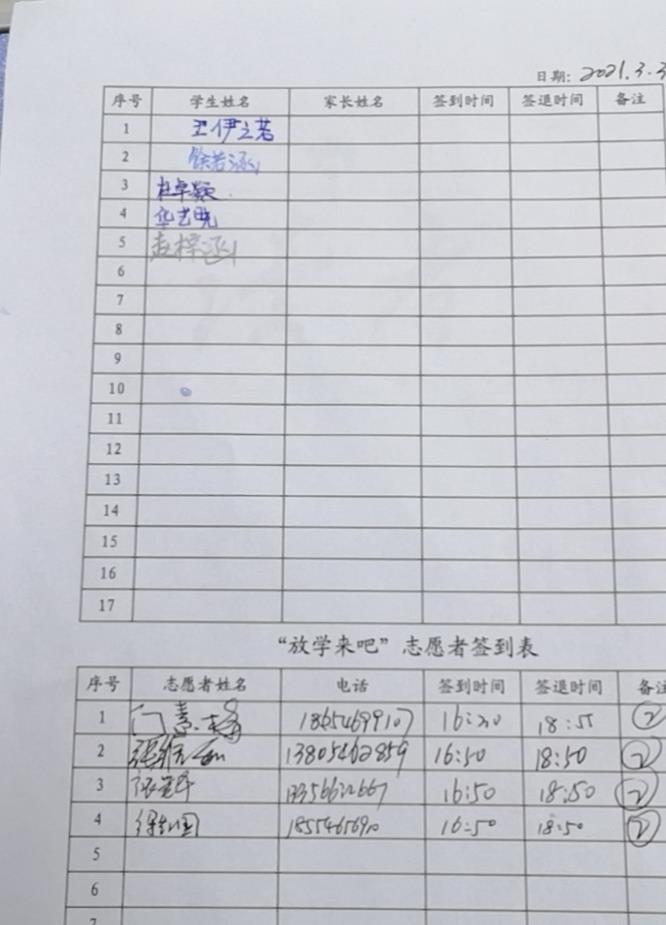 日期: 2021.3.3
序号 学生姓名 家长姓名 签到时间 签退时间 备注
1 王伊之若
2 徐若涵
3 杜卓颖
4 华艺晓
5 赵梓涵
6
7
8
9
10
11
12
13
14
15
16
17
“放学来吧”志愿者签到表
序号 志愿者姓名 电话 签到时间 签退时间 备注
1 18654699107 16:30 18:55 ②
2 13805462859 16:50 18:50 ②
3 16:50 18:50 ②
4 16:50 18:50 ②
5
6
7